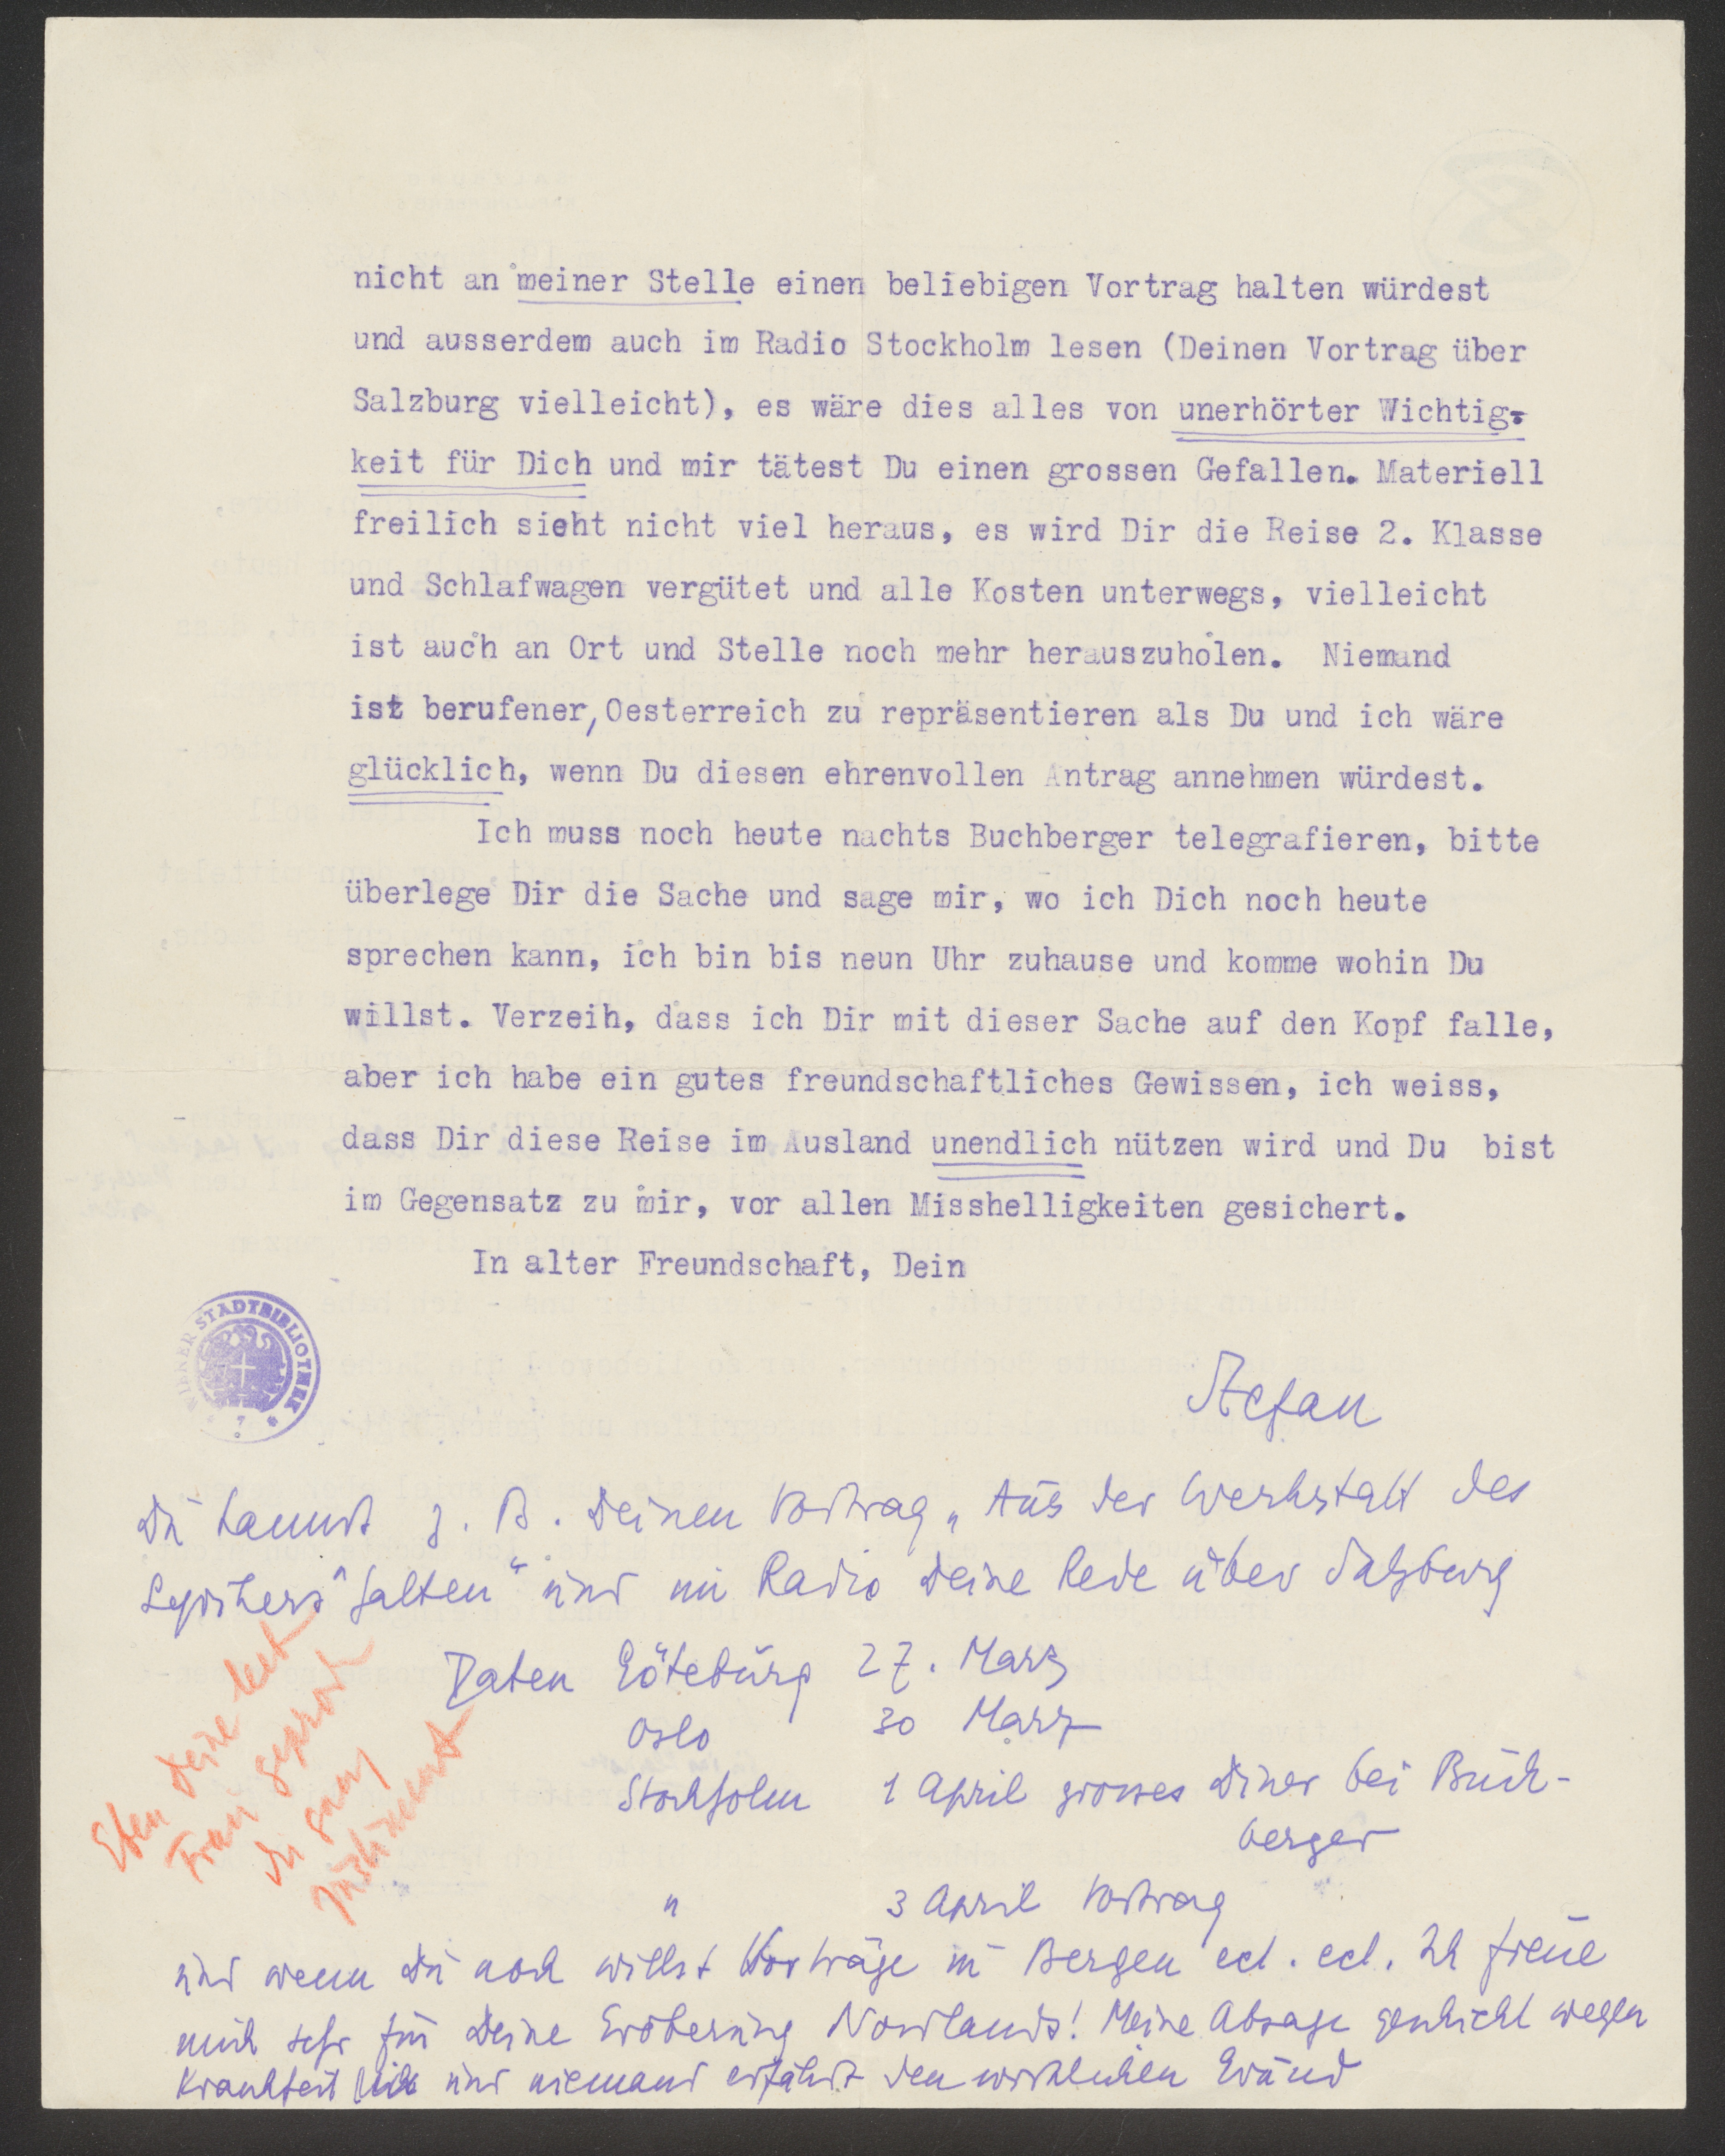 nicht an meiner Stelle einen beliebigen Vortrag halten würdest
und ausserdem auch im Radio Stockholm lesen (Deinen Vortrag über
Salzburg vielleicht), es wäre dies alles von unerhörter Wichtig-
keit für Dich und mir tätest Du einen grossen Gefallen. Materiell
freilich sieht nicht viel heraus, es wird Dir die Reise 2. Klasse
und Schlafwagen vergütet und alle Kosten unterwegs, vielleicht
ist auch an Ort und Stelle noch mehr herauszuholen. Niemand
ist berufener, Oesterreich zu repräsentieren als Du und ich wäre
glücklich, wenn Du diesen ehrenvollen Antrag annehmen würdest.
Ich muss noch heute nachts Buchberger telegrafieren, bitte
überlege Dir die Sache und sage mir, wo ich Dich noch heute
sprechen kann, ich bin bis neun Uhr zuhause und komme wohin Du
willst. Verzeih, dass ich Dir mit dieser Sache auf den Kopf falle,
aber ich habe ein gutes freundschaftliches Gewissen, ich weiss,
dass Dir diese Reise im Ausland unendlich nützen wird und Du bist
im Gegensatz zu mir, vor allen Misshelligkeiten gesichert.
In alter Freundschaft, Dein
WIENER STADTBIBLIOTHEK
Stefan
Du kannst z. B. Deinen Vortrag „Aus der Werkstatt des
Lyrikers" halten" und im Radio Deine Rede über Salzburg
Daten Göteburg 27. März
Oslo 30 März
Stockholm 1 April grosses Diner bei Buch-
berger
" 3 April Vortrag
und wenn Du noch willst Vorträge in Bergen ect. ect. Ich freue
mich sehr für Deine Eroberung Nordlands! Meine Absage geschieht wegen
Krankheit und niemand erfährt den wirklichen Grund
Eben Deine
Frau
Du ganz